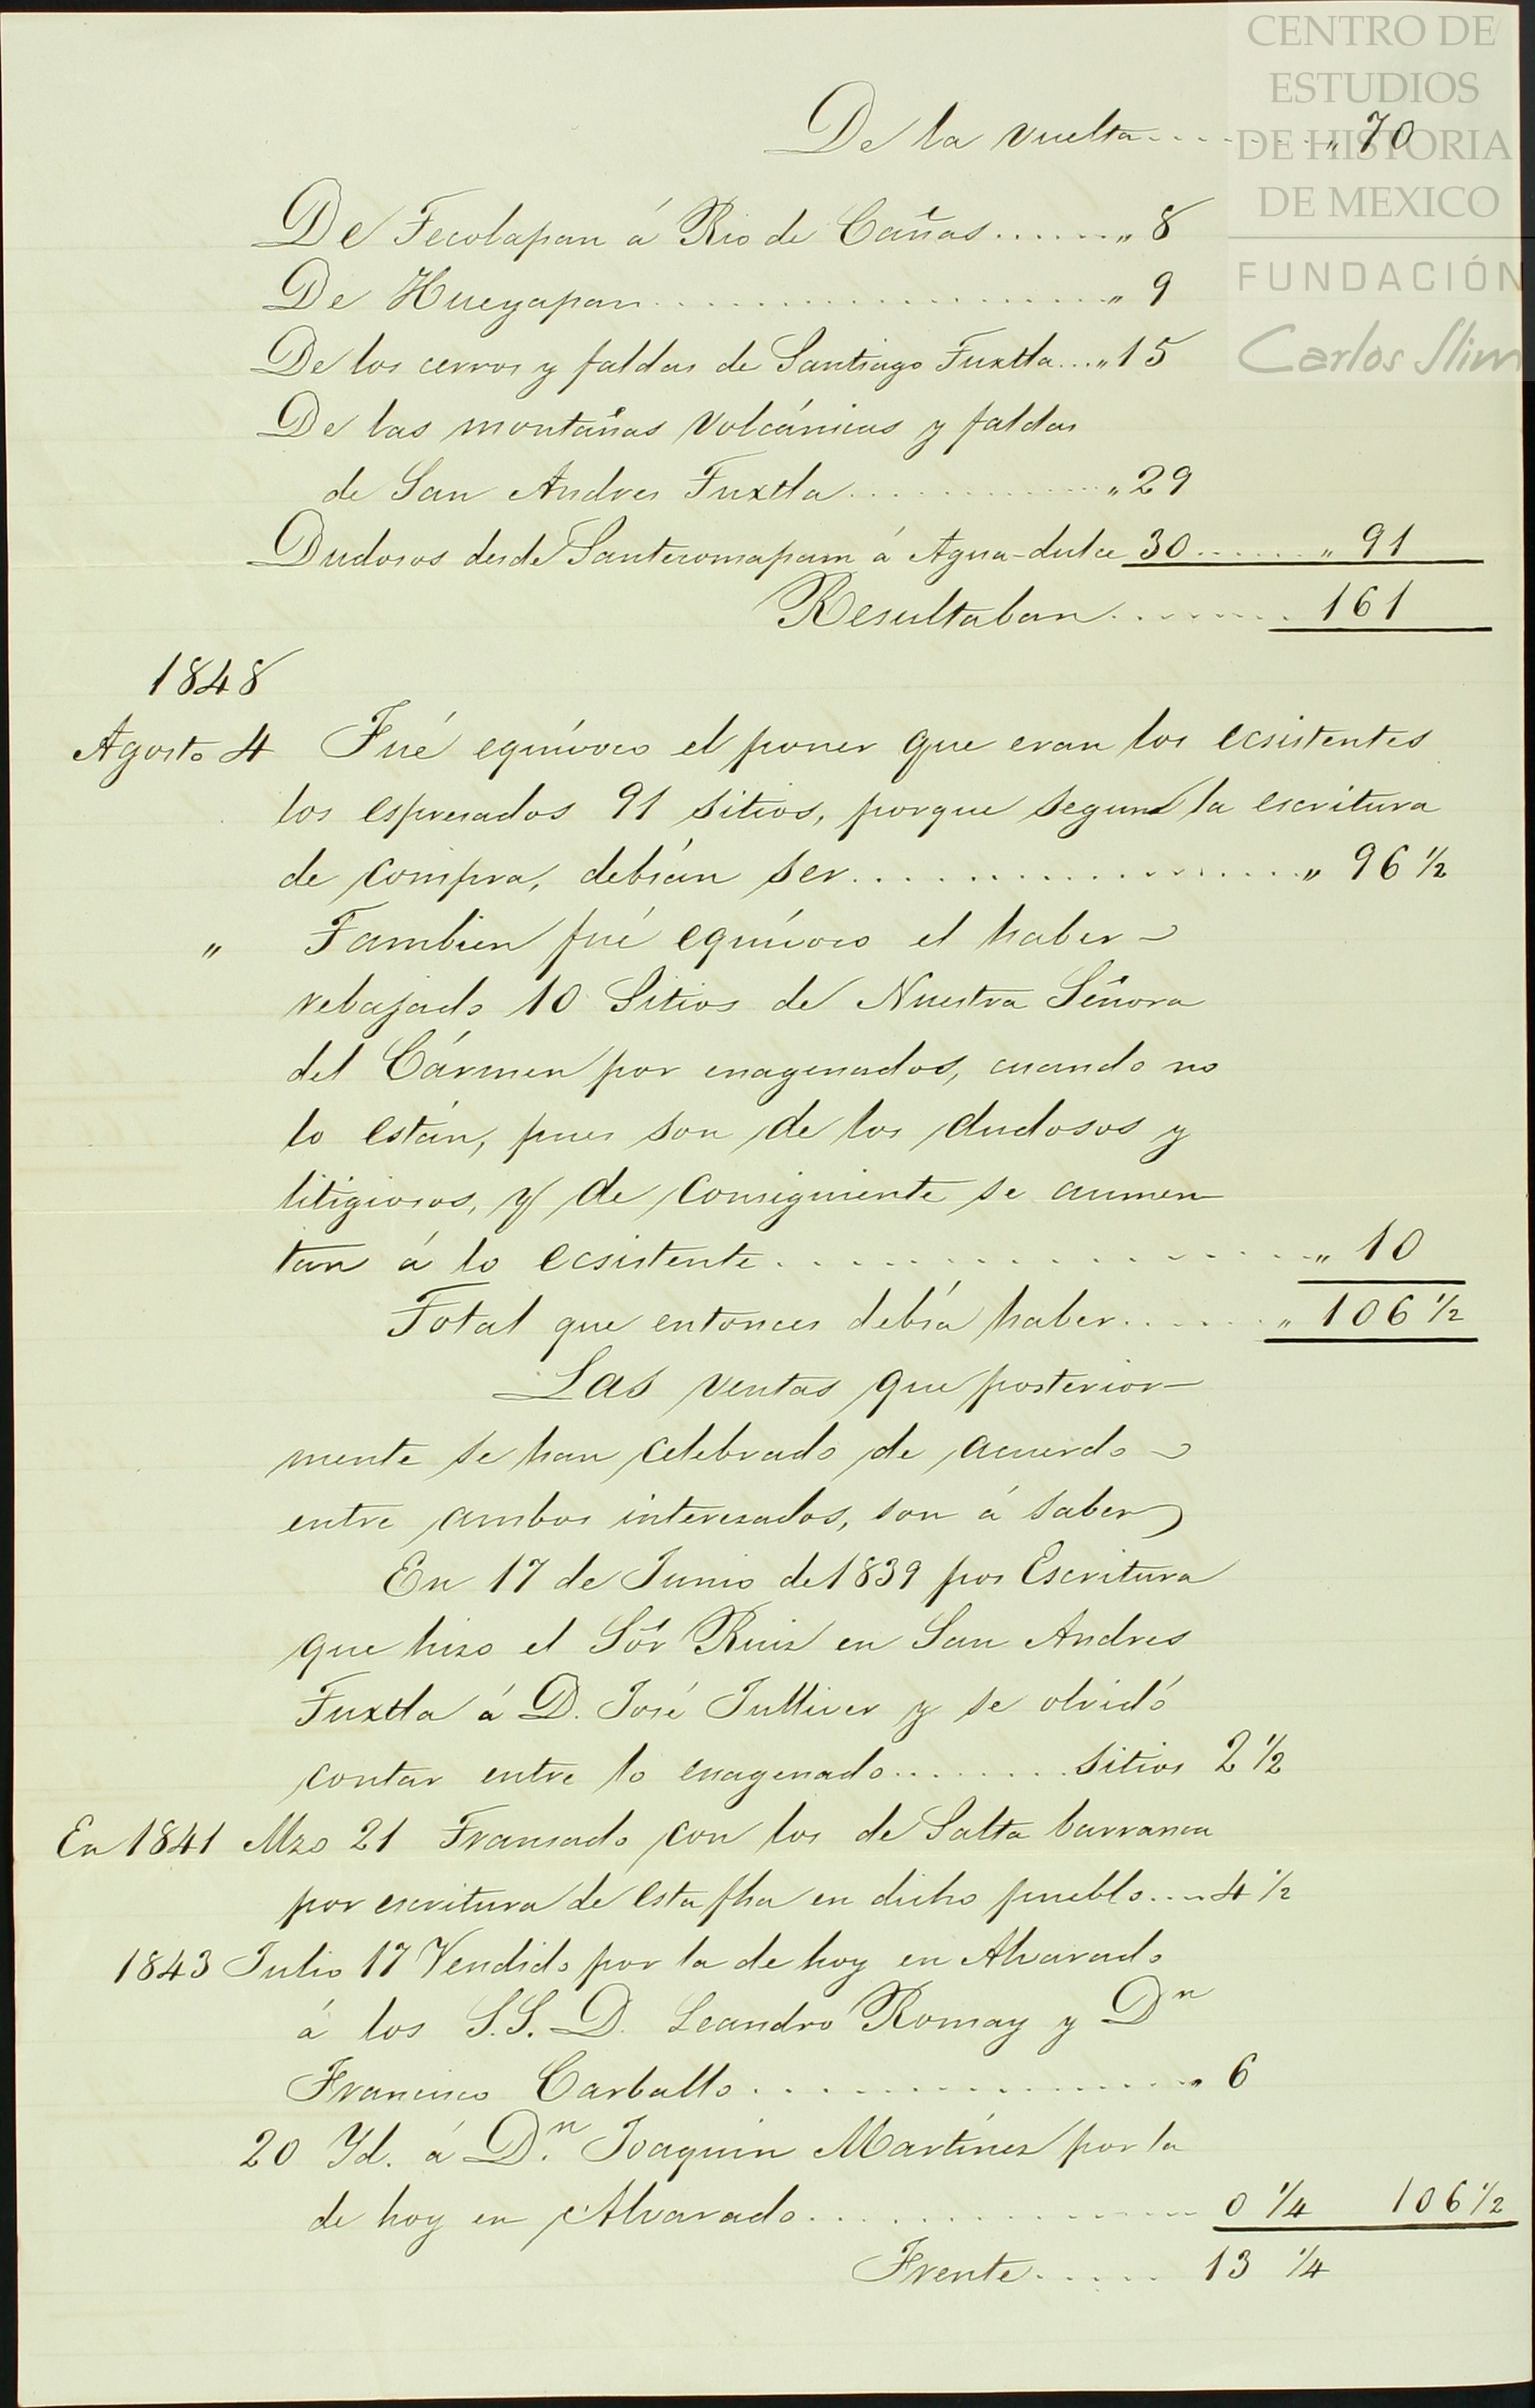 CENTRO DE
ESTUDIOS
DE HISTORIA
DE MEXICO
FUNDACIÓN
Carlos Slim
De la vuelta........„ 70
De Tecolapan á Rio de Cañas.......„ 8
De Hueyapan...................„ 9
De los cerros y faldas de Santiago Tuxtla...„ 15
De las montañas volcánicas y faldas
de San Andres Tuxtla.............„ 29
Dudosos desde Santecomapam á Agua-dulce 30.......„ 91
Resultaban......... 161
1848
Agosto 4 Fué equívoco el poner que eran los ecsistentes
los espresados 91 sitios, porque segun la escritura
de compra, debían ser...................„ 96 ½
„ Tambien fué equívoco el haber
rebajado 10 Sitios de Nuestra Señora
del Cármen por enagenados, cuando no
lo están, pues son de los dudosos y
litigiosos, y de consiguiente se aumen-
tan á lo ecsistente...................„ 10
Total que entonces debía haber.......„ 106 ½
Las ventas que posterior-
mente se han celebrado de acuerdo
entre ambos interesados, son á saber
En 17 de Junio de 1839 por Escritura
que hizo el Sôr Ruiz en San Andres
Tuxtla á D. José Tulliver y se olvidó
contar entre lo enagenado........ Sitios 2 ½
En 1841 Mzo 21 Transado con los de Salta barranca
por escritura de esta fha en dicho pueblo.... 4 ½
1843 Julio 17 Vendido por la de hoy en Alvarado
á los S.S. D. Leandro Romay y Dn
Francisco Carballo...................„ 6
20 Yd. á Dn. Joaquin Martínez por la
de hoy en Alvarado................ 0 ¼ 106 ½
Frente...... 13 ¼